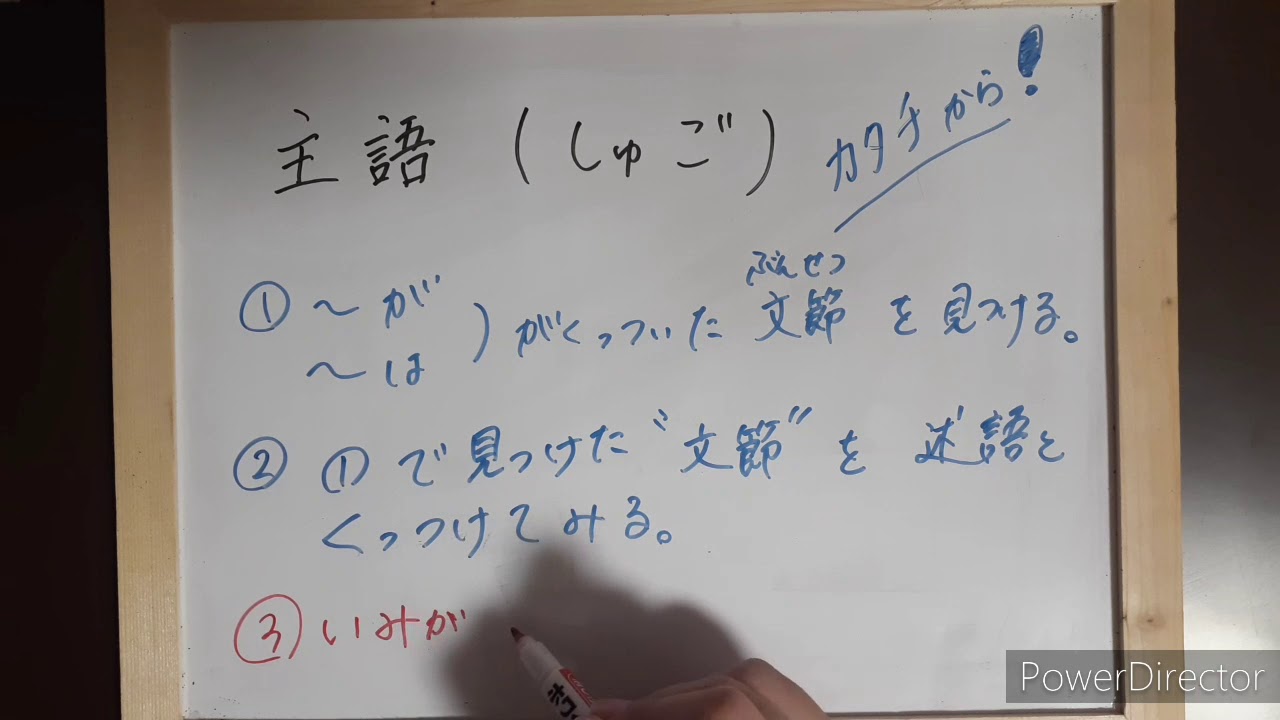 主語(しゅご)
カタチから!
① 〜が
〜は
)がくっついた文節を見つける。
ぶんせつ
② ①で見つけた〝文節〟を述語と
くっつけてみる。
③ いみが
ホワイ
PowerDirector